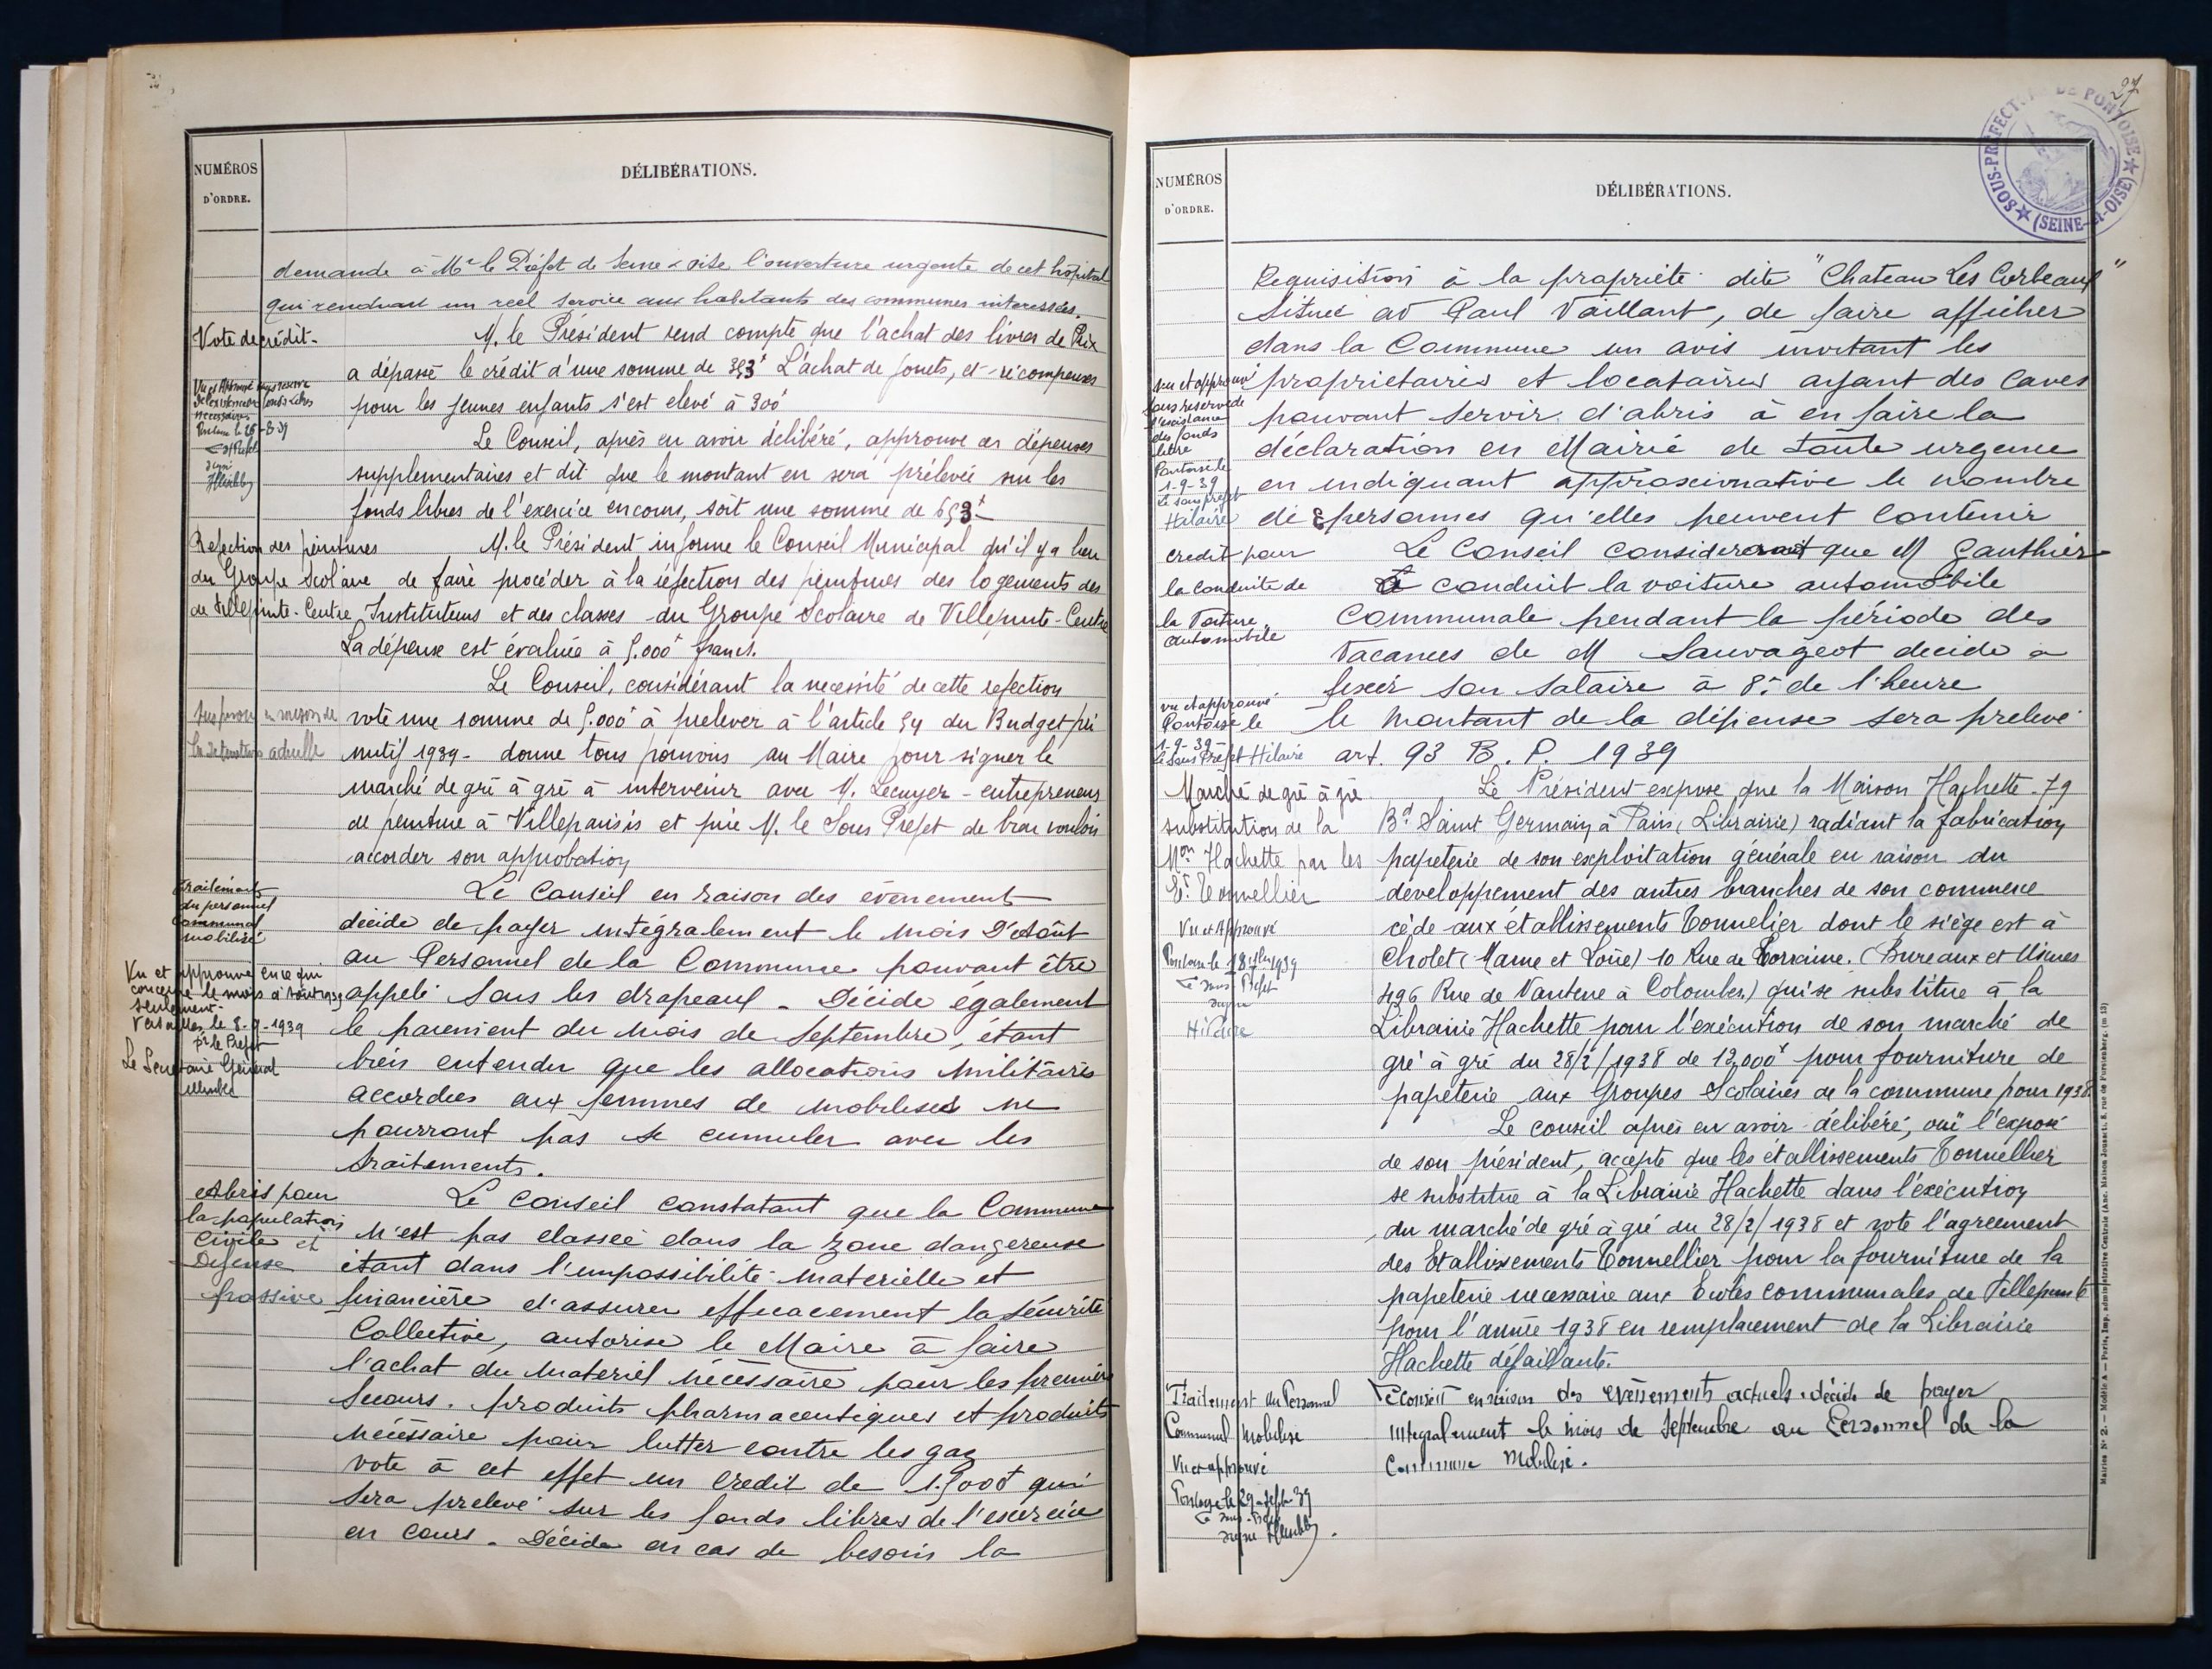 NUMÉROS
D'ORDRE.
DÉLIBÉRATIONS.
demande à Mr le Préfet de Seine & Oise, l'ouverture urgente de cet hôpital
qui rendrait un reel service aux habitants des communes interessées.
Vote de crédit -
M. le Président rend compte que l'achat des livres de Prix
a dépassé le crédit d'une somme de 353f L'achat de jouets, et récompenses
pour les jeunes enfants s'est elevé à 300f
Le Conseil, après en avoir délibéré, approuve ces dépenses
supplementaires et dit que le montant en sera prélevée sur les
fonds libres de l'exercice encours, soit une somme de 653f
Vu et Approuvé sous reserve
de l'existence de fonds libres
necessaires
Pontoise le 26-8-39
Refection des peintures
du Groupe Scolaire
de Villepinte-Centre
M. le Président informe le Conseil Municipal qu'il y a lieu
de faire procéder à la réfection des peintures des logements des
Instituteurs et des classes du Groupe Scolaire de Villepinte-Centre
La dépense est évaluée à 5.000f francs.
Le Conseil, considérant la necessité de cette refection
vote une somme de 5.000f à prelever à l'article 54 du Budget pri
mitif 1939 - donne tous pouvoirs au Maire pour signer le
marché de gré à gré à intervenir avec M. Lecuyer - entrepreneur
de peinture à Villeparisis et prie M. le Sous Prefet de bien vouloir
accorder son approbation
en raison de
la situation actuelle
Traitement
du personnel
Communal
mobilisé
Le Conseil en raison des évènements
décide de payer intégralement le mois D'Août
au Personnel de la Commune pouvant être
appelé sous les drapeaux - Décide également
le paiement du mois de Septembre, étant
bien entendu que les allocations militaires
accordées aux femmes de mobilisés ne
pourront pas se cumuler avec les
traitements.
Vu et approuvé en ce qui
concerne le mois d'Aout 1939
seulement.
Versailles, le 8-9-1939
Pr le Prefet
Le Secretaire Général
Abris pour
la population
Civile et
Défense
passive
Le Conseil constatant que la Commune
n'est pas classée dans la zone dangereuse
étant dans l'impossibilité materielle et
financière d'assurer efficacement la sécurité
Collective, autorise le Maire à faire
l'achat du materiel nécessaire pour les premiers
secours. produits pharmaceutiques et produits
nécessaire pour lutter contre les gaz
vote à cet effet un credit de 1.500f qui
sera prelevé sur les fonds libres de l'exercice
en cours. Décide en cas de besoin la
27
SOUS-PRÉFECTURE DE PONTOISE
(SEINE-ET-OISE)
NUMÉROS
D'ORDRE.
DÉLIBÉRATIONS.
Requisition à la propriété dite "Chateau Les Corbeaux"
Située av Paul Vaillant, de faire afficher
dans la Commune un avis invitant les
propriétaires et locataires ayant des caves
pouvant servir d'abris à en faire la
déclaration en Mairie de toute urgence
en indiquant approximative le nombre
de personnes qu'elles peuvent contenir
Vu et approuvé
sous reserve de
l'existance
des fonds
libre
Pontoise le
1-9-39
Le sous prefet
Hilaire
credit pour
la conduite de
la Voiture
automobile
Le Conseil considerant que M Gauthier
a conduit la voiture automobile
Communale pendant la période des
vacances de M Sauvageot decide a
fixer son salaire à 8f de l'heure
le montant de la dépense sera prelevé
art. 93 B. P. 1939
vu et approuvé
Pontoise le
1-9-39
le Sous Prefet Hilaire
Marché de gré à gré
substitution de la
Mon Hachette par les
Ets Tonnellier
Le Président expose que la Maison Hachette - 79
Bd Saint Germain à Paris (Librairie) radiant la fabrication
papeterie de son exploitation générale en raison du
developpement des autres branches de son commerce
cède aux établissements Tonnelier dont le siège est à
Cholet (Maine et Loire) 10 Rue de Lorraine. (Bureaux et Usines
496 Rue de Nanterre à Colombes.) qui se substitue à la
Librairie Hachette pour l'exécution de son marché de
gré à gré du 28/2/1938 de 12,000f pour fourniture de
papeterie aux Groupes Scolaires de la commune pour 1938.
Le conseil après en avoir délibéré, ouï l'exposé
de son président, accepte que les établissements Tonnellier
se substitue à la Librairie Hachette dans l'exécution
du marché de gré à gré du 28/2/1938 et vote l'agreement
des Etablissements Tonnellier pour la fourniture de la
papeterie necessaire aux Ecoles communales de Villepinte
pour l'année 1938 en remplacement de la Librairie
Hachette défaillante.
Vu et Approuvé
Pontoise le 1939
Le Sous Prefet
signé
Hilaire
Traitement du Personnel
Communal mobilisé
Le conseil en raison des evènements actuels décide de payer
integralement le mois de Septembre au Personnel de la
Commune Mobilisé.
Vu et approuvé
Pontoise le 29-Sept-39
Le Sous-Prefet
signé
Mairies N° 2. — Modèle A — Paris, Imp. administrative Centrale (Anc. Maison Jousset), 8, rue de Furstenberg. (m 13)